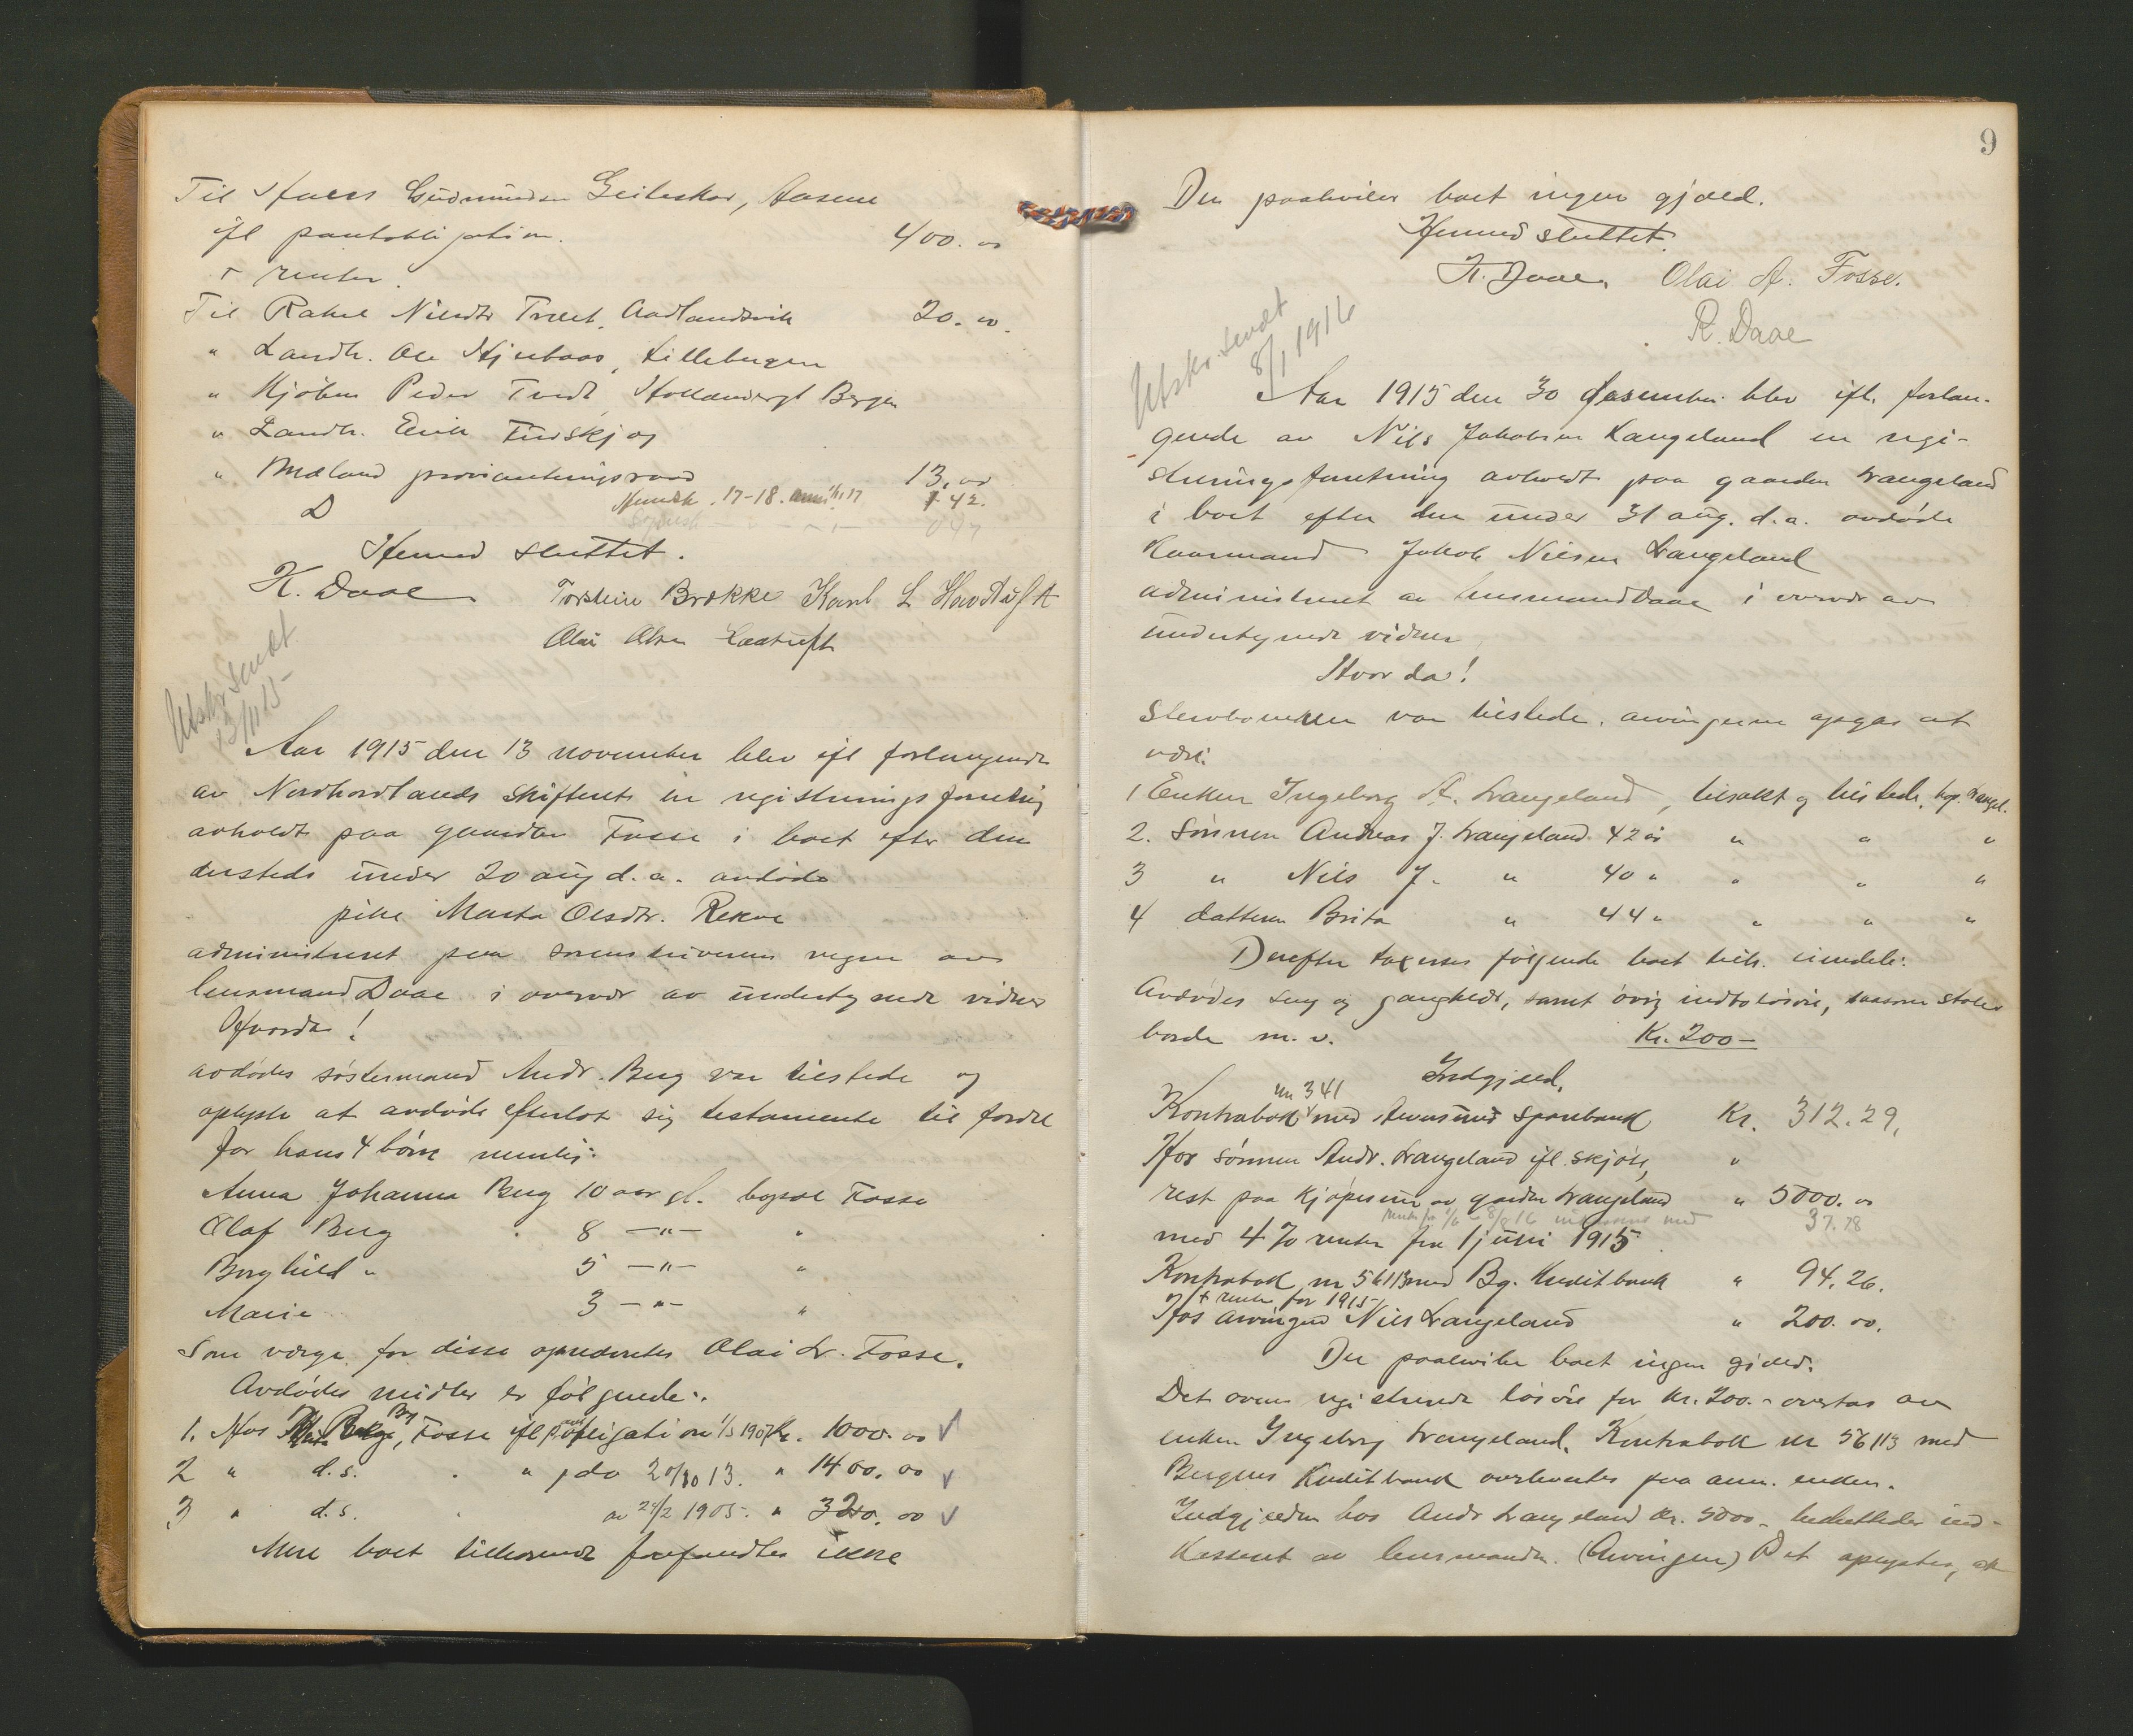 Til Gudmundsen Geiteskar, Aasene
ifl pantobligation. 400.00
+ renter.
Til Rakel Nilsdtr Tveit, Aadlandsvik 20.00.
" Landh. Ole Lillebergen
" Kjøbm Peder Tvedt, Hollendergt Bergen
" Landh. Erik
" Mæland provianteringsraad 13.00
17-18. 42.
Hermed sluttet.
K. Daae Torstein Brække Karl L
Olai Olsen
Utskr. sendt
13/11 15
Aar 1915 den 13 november blev ifl forlangende
av Nordhordlands skifteret en registreringsforretning
avholdt paa gaarden Fosse i boet efter den
dersteds under 20 aug d.a. avdøde
pike Marta Olsdtr. Rekve
administreret paa sorenskriverens vegne av
lensmand Daae i overvær av undertegnede vidner
Hvorda!
avdødes søstermand Andr. Berg var tilstede og
oplyste at avdøde efterlot sig testamente til fordel
for hans 4 børn nemlig:
Anna Johanna Berg 10 aar gl. bopæl Fosse
Olaf Berg 8 —"— "
Borghild " 5 —"— "
Marie 3 —"— "
Som værge for disse opnævntes Olai A. Fosse.
Avdødes midler er følgende:
1. Hos Berg, Fosse ifl pantobligation 1/3 1907 Kr. 1000.00
2 " d.s. " do 20/10 13. " 1400.00
3 " d.s. av 24/2 1905. " 320.00
Mere boet tilhørende forefandtes ikke
9
Der paahviler boet ingen gjæld.
Hermed sluttet.
K. Daae. Olai A. Fosse.
R. Daae
Utskr. sendt
8/1 1916
Aar 1915 den 30 desember blev ifl. forlan-
gende av Nils Jakobsen Langeland en regi-
streringsforretning avholdt paa gaarden Langeland
i boet efter den under 31 aug. d.a. avdøde
Kaarmand Jakob Nilsen Langeland
administreret av lensmand Daae i overvær av
undertegnede vidner
Hvor da!
Sterbboenken var tilstede. arvingerne opgas at
være:
1 Enken Ingeborg A. Langeland, tilsakt og tilstede, bop. Langel.
2. Sønnen Andreas J. Langeland 42 år " " "
3 " Nils J. " 40 " " " "
4 datteren Brita " 44 " " " "
Derefter taxertes følgende boet tilh. eiendele:
Avdødes seng og gangklær, samt øvrig indboløsøre, saasom stoler
borde m.v. Kr. 200—
Indgjæld.
nr 341
Kontrabok med sparebank Kr. 312.29.
Hos sønnen Andr. Langeland ifl. skjøte, "
rest paa kjøpesum av garden Langeland " 5000.00
37.78
med 4 % renter fra 1 juni 1915
Kontrabok nr 56113 med Bg. Kreditbank " 94.26.
+ rente for 1915
Hos arvingen Nils Langeland " 200.00.
Der paahviler boet ingen gjæld.
Det oven registrerede løsøre for Kr. 200.- overtas av
enken Ingeborg Langeland. Kontrabok nr 56113 med
Bergens Kreditbank overleveres paa ann. enken.
Indgjælden hos Andr Langeland kr. 5000 - besluttedes ind-
kassert av lensmanden. (Arvingen) Det oplystes, at